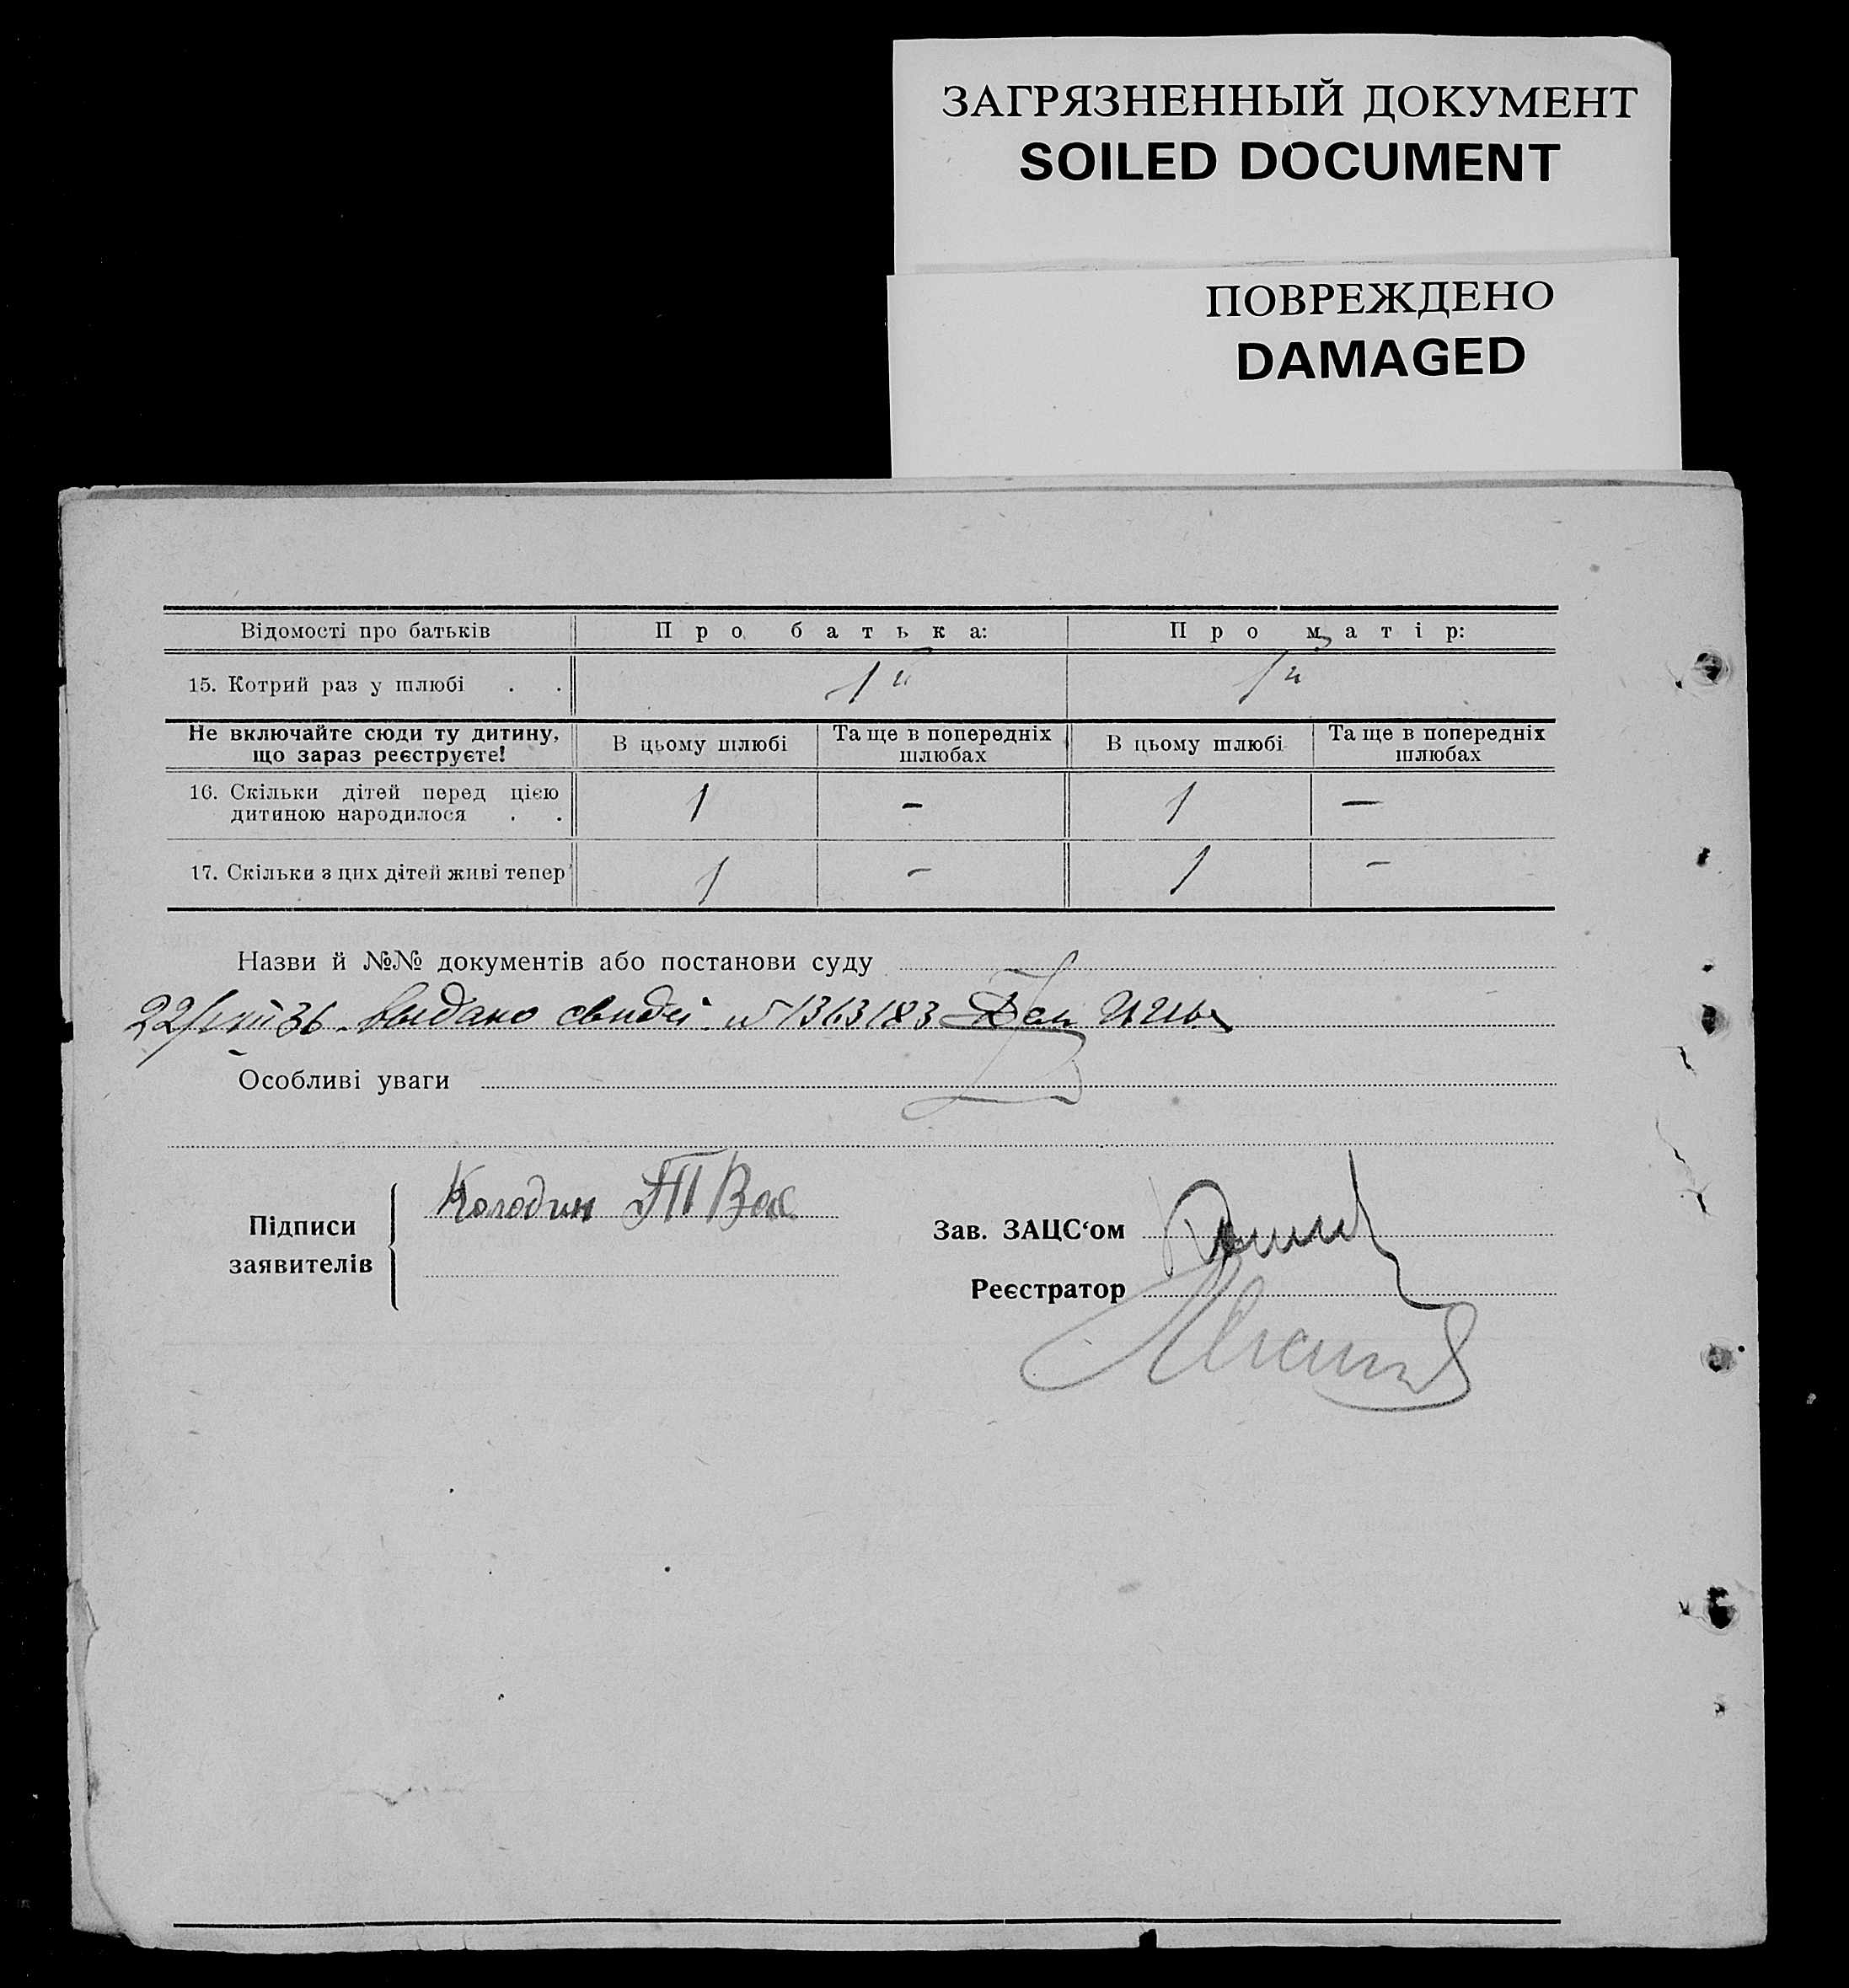 ЗАГРЯЗНЕННЫЙ ДОКУМЕНТ
SOILED DOCUMENT
ПОВРЕЖДЕНО
DAMAGED
Відомості про батьків Про батька: Про матір:
15. Котрий раз у шлюбі . . 1й 1й
Не включайте сюди ту дитину, що зараз реєструєте! В цьому шлюбі Та ще в попередніх шлюбах В цьому шлюбі Та ще в попередніх шлюбах
16. Скільки дітей перед цією дитиною народилося . . 1 – 1 –
17. Скільки з цих дітей живі тепер 1 – 1 –
Назви й №№ документів або постанови суду
22/VIII 36. Видано свидет. № 1363183
Особливі уваги
Колодин
Підписи заявителів
Зав. ЗАЦС‘ом
Реєстратор